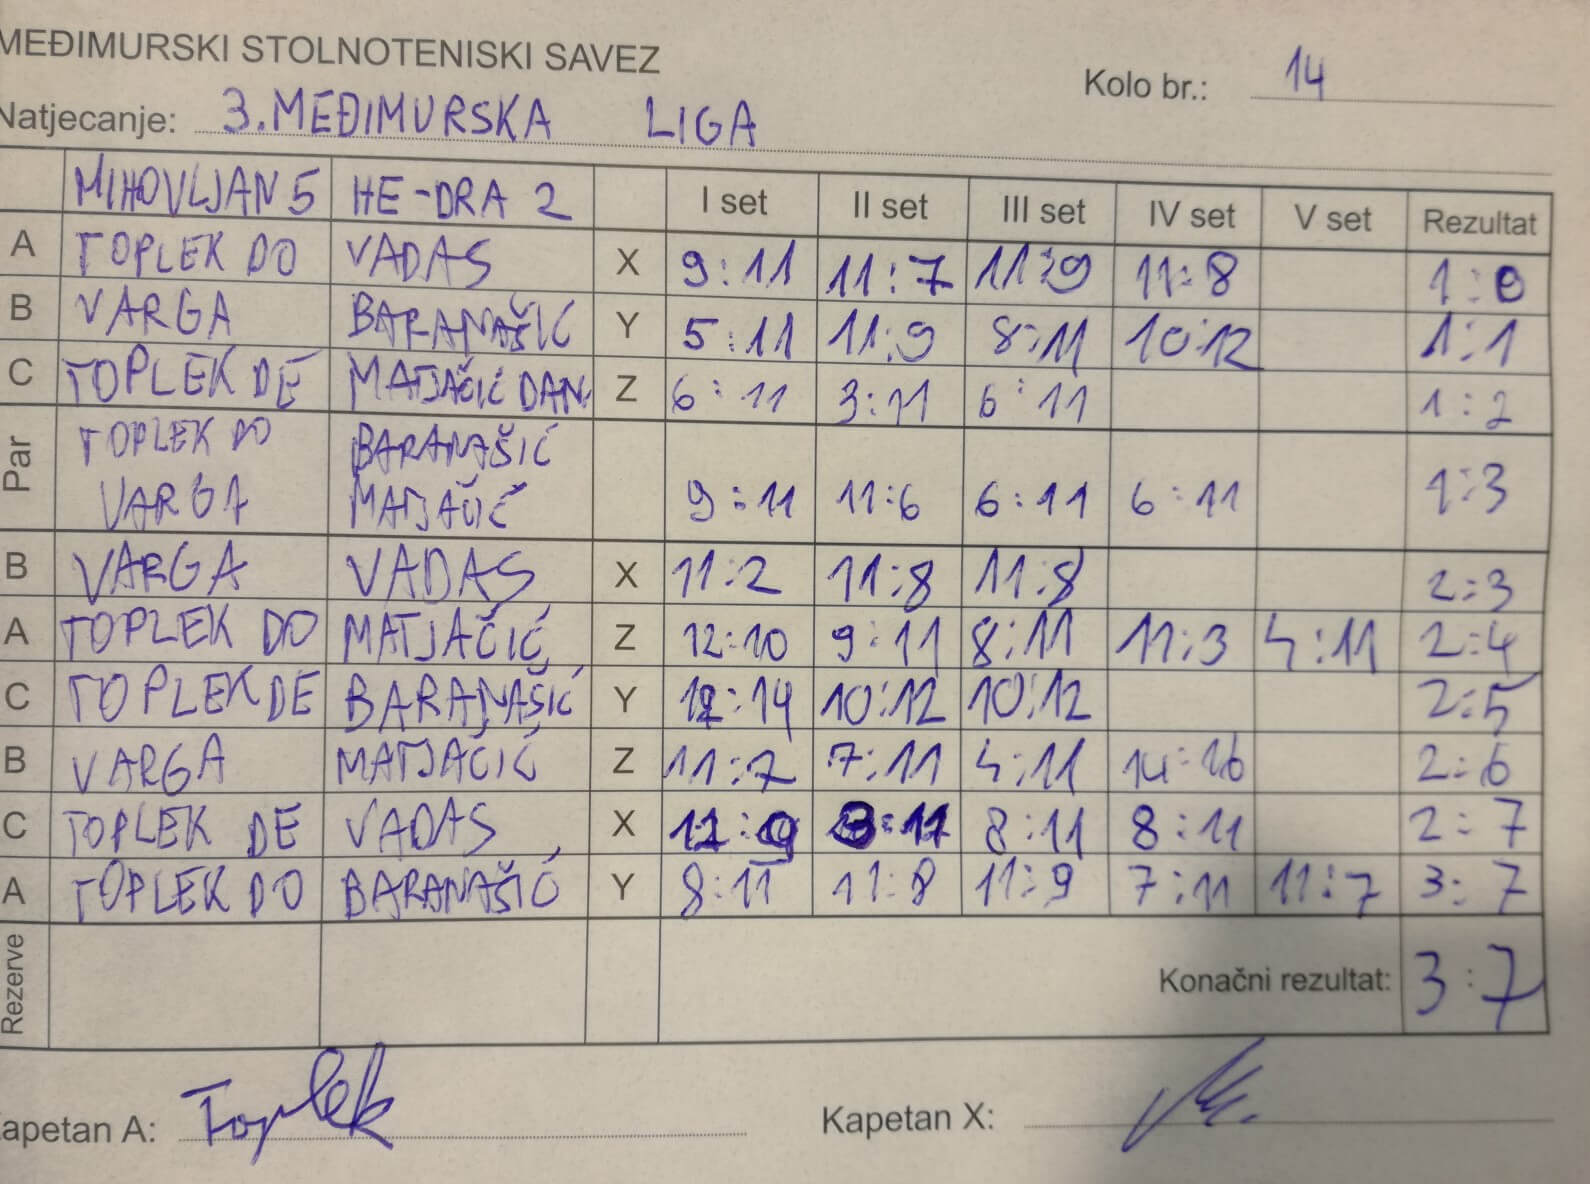 MEĐIMURSKI STOLNOTENISKI SAVEZ
Kolo br.: 14
Natjecanje: 3. MEĐIMURSKA LIGA
MIHOVLJAN 5 HE-DRA 2 I set II set III set IV set V set Rezultat
A TOPLEK DO VADAS X 9:11 11:7 11:9 11:8 1:0
B VARGA BARANAŠIĆ Y 5:11 11:9 8:11 10:12 1:1
C TOPLEK DE MATJAČIĆ DAN. Z 6:11 3:11 6:11 1:2
Par TOPLEK DO BARANAŠIĆ
VARGA MATJAČIĆ 9:11 11:6 6:11 6:11 1:3
B VARGA VADAS X 11:2 11:8 11:8 2:3
A TOPLEK DO MATJAČIĆ Z 12:10 9:11 8:11 11:3 4:11 2:4
C TOPLEK DE BARANAŠIĆ Y 12:14 10:12 10:12 2:5
B VARGA MATJAČIĆ Z 11:7 7:11 4:11 14:16 2:6
C TOPLEK DE VADAS X 11:9 3:11 8:11 8:11 2:7
A TOPLEK DO BARANAŠIĆ Y 8:11 11:8 11:9 7:11 11:7 3:7
Rezerve Konačni rezultat: 3:7
apetan A: Toplek Kapetan X: